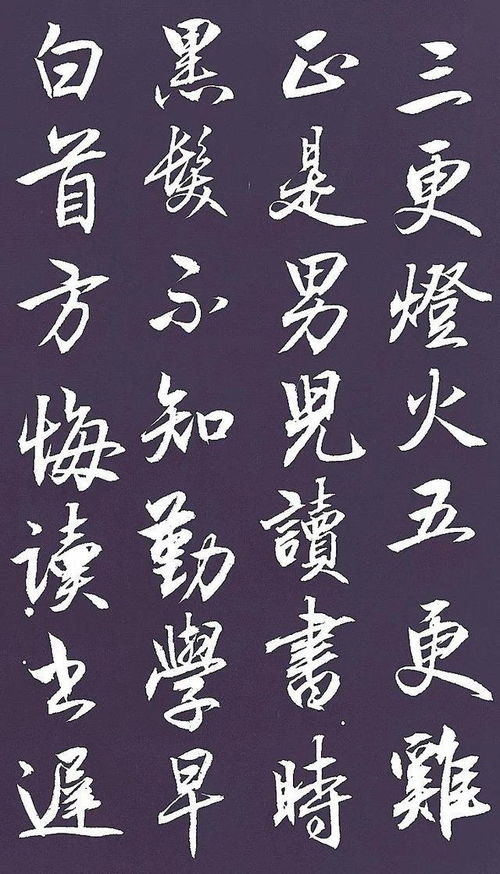 三更燈火五更雞
正是男兒讀書時
黑髮不知勤學早
白首方悔读书遲